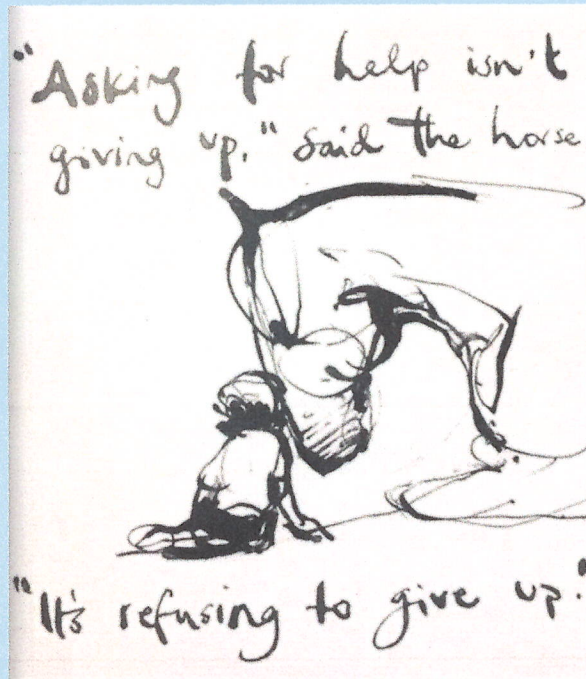 "Asking for help isn't
giving up." said the horse
"It's refusing to give up."